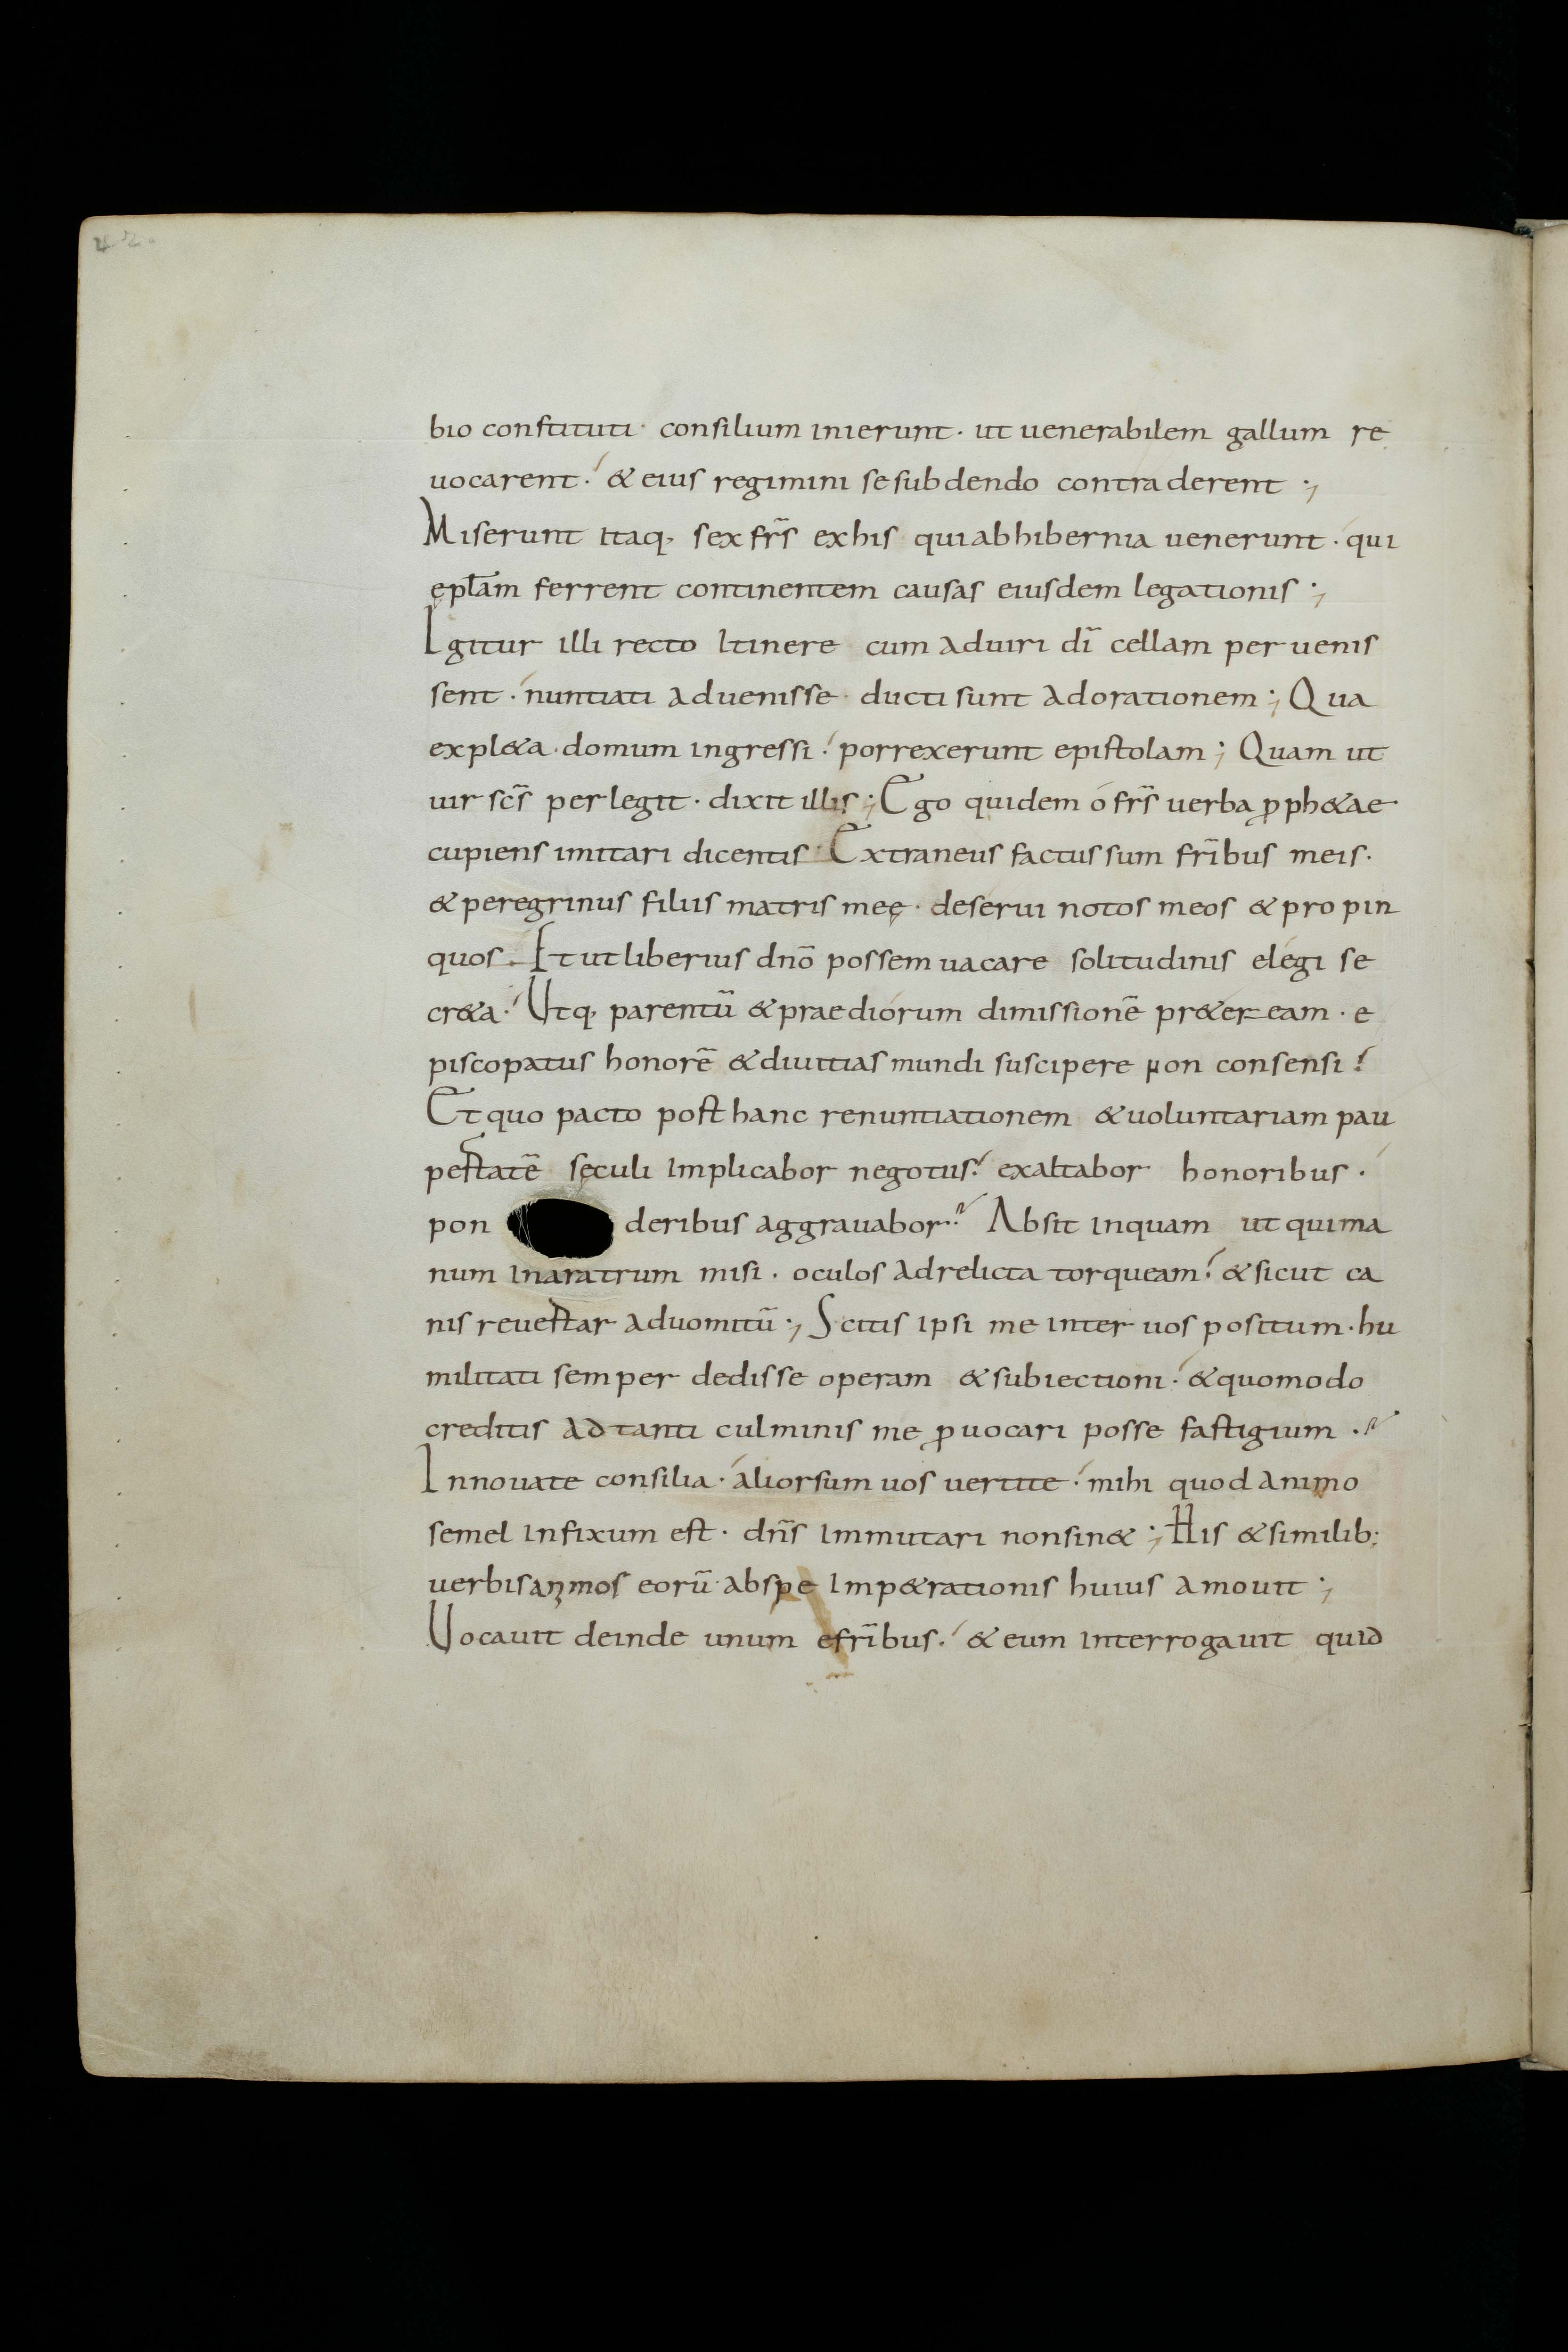 42.
bio constituti· consilium inierunt· ut uenerabilem gallum re
uocarent·́ & eius regimini se subdendo contraderent ·,
Miserunt itaq· sex fr̃s ex his qui ab hibernia uenerunt·́ qui
ep̃lam ferrent continentem causas eiusdem legationis ·,
Igitur illi recto Itinere cum ad uiri dı̃ cellam peruenis
sent·́ nuntiati aduenisse· ducti sunt ad orationem ·, Qua
expl&a· domum ingressi·́ porrexerunt epistolam ·, Quam ut
uir sc̃s perlegit· dixit illis ·, Ego quidem ó fr̃s uerba ꝓph&ae
cupiens imitari dicentis· Extraneus factus sum fr̃ibus meis·
& peregrinus filiis matris meę· deserui notos meos & propin
quos. Et ut liberius dnõ possem uacare solitudinis elegi se
cr&a·́ Utq· parentũ & praediorum dimissionẽ pr&eream· e
piscopatus honorẽ & diuitias mundi suscipere non consensi·́
Et quo pacto post hanc renuntiationem & uoluntariam pau
pertatẽ sęculi Implicabor negotiis·́ exaltabor honoribus·́
pon deribus aggrauabor·~ Absit inquam ut qui ma
num In aratrum misi· oculos ad relicta torqueam·́ & sicut ca
nis reuertar ad uomitũ ·, Scitis ipsi me inter uos positum· hu
militati semper dedisse operam & subiectioni·́ & quomodo
creditis ad tanti culminis me ꝓuocari posse fastigium·~
Innouate consilia·́ aliorsum uos uertite·́ mihi quod animo
semel infixum est· dñs Immutari non sin& ·, His & similib;
uerbis animos eorũ ab spe Imp&rationis huius amouit ·,
Uocauit deinde unum e fr̃ibus·́ & eum interrogauit quid